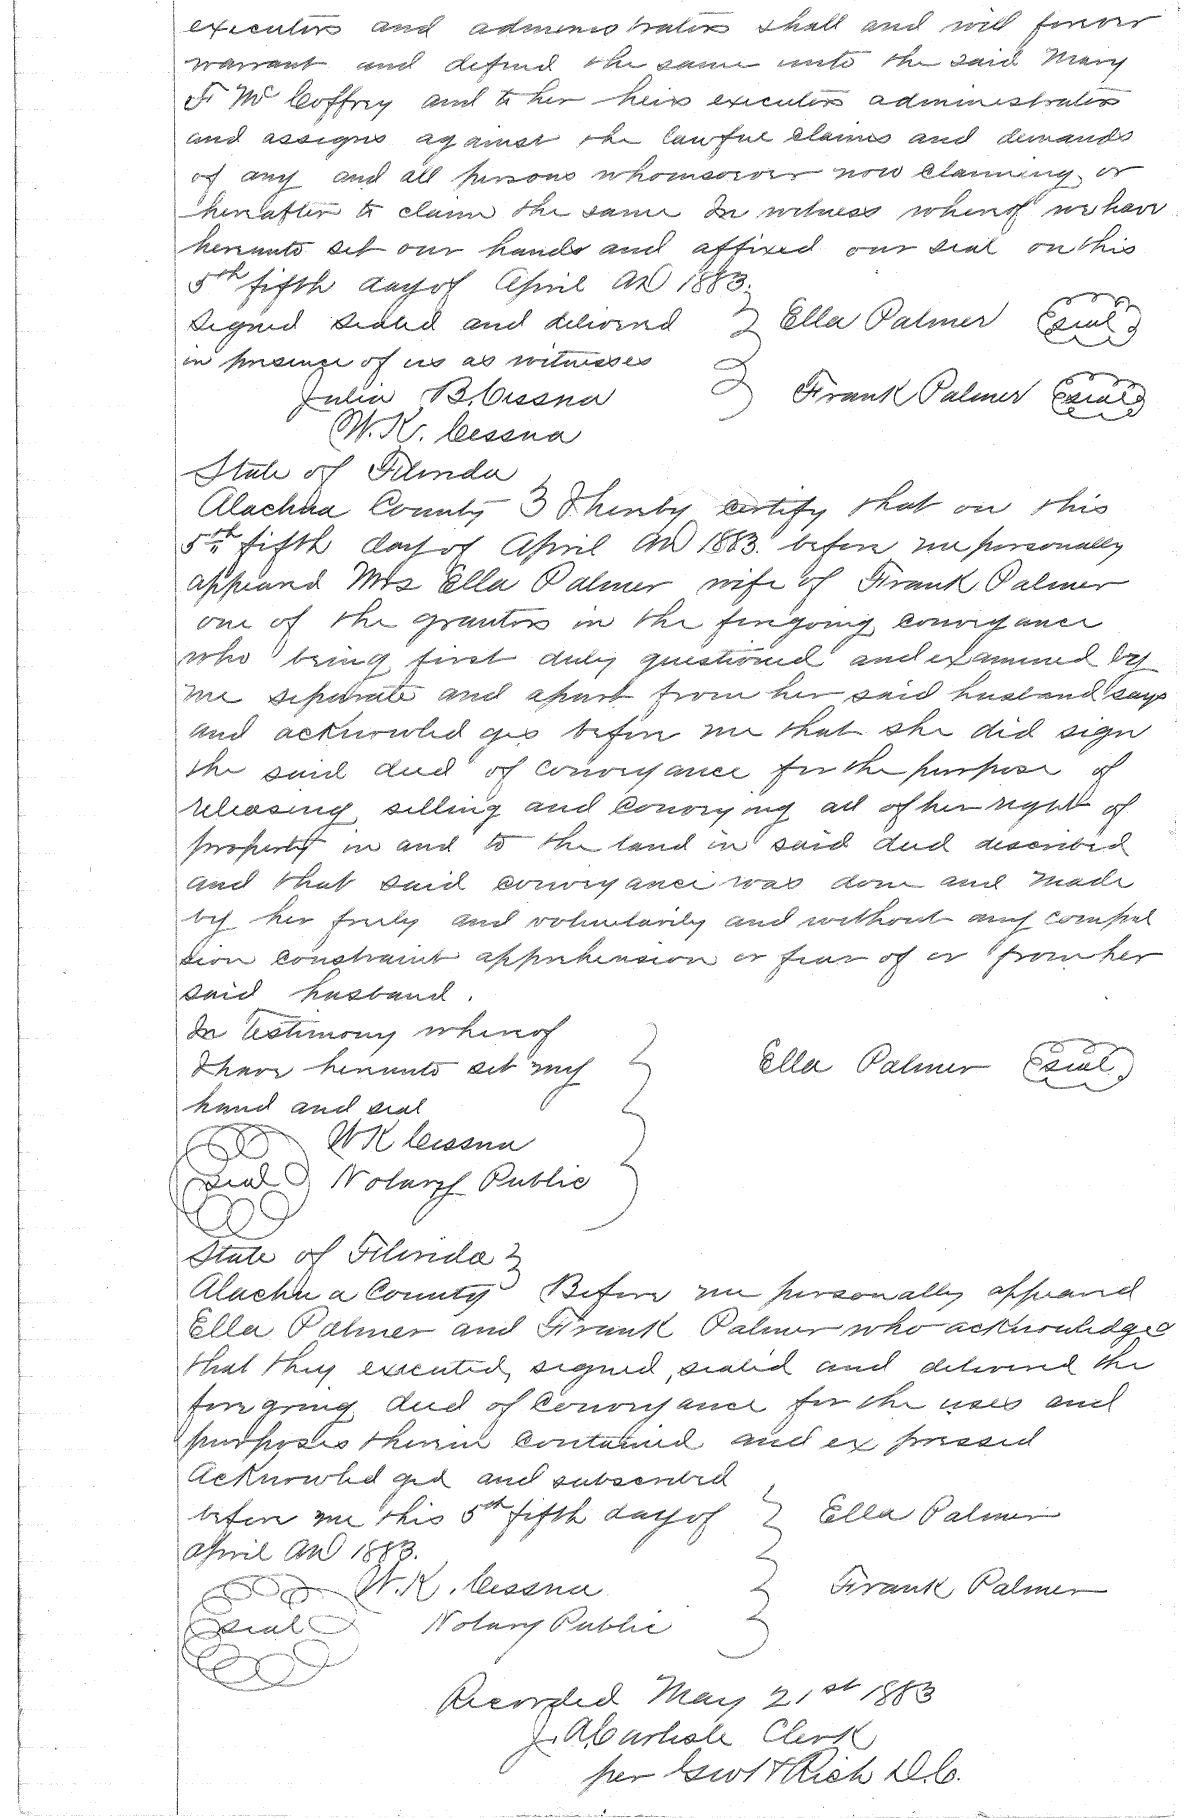 executors and administrators shall and will forever
warrant and defend the same unto the said Mary
F McCoffrey and to her heirs executors administrators
and assigns against the lawful claims and demands
of any and all persons whomsoever now claiming or
hereafter to claim the same In witness whereof we have
hereunto set our hands and affixed our seal on this
5th fifth day of April AD 1883.
Signed sealed and delivered Ella Palmer seal
in presence of us as witnesses
Julia B. Cessna Frank Palmer seal
W. K. Cessna
State of Florida
Alachua County I hereby certify that on this
5th fifth day of April AD 1883. before me personally
appeared Mrs Ella Palmer wife of Frank Palmer
one of the grantors in the foregoing conveyance
who being first duly questioned and examined by
me separate and apart from her said husband says
and acknowledges before me that she did sign
the said deed of conveyance for the purpose of
releasing selling and conveying all of her right of
property in and to the land in said deed described
and that said conveyance was done and made
by her freely and voluntarily and without any compul
sion constraint apprehension or fear of or from her
said husband.
In Testimony whereof
I have hereunto set my Ella Palmer seal
hand and seal
W K Cessna
seal Notary Public
State of Florida
Alachua County Before me personally appeared
Ella Palmer and Frank Palmer who acknowledged
that they executed, signed, sealed and delivered the
foregoing deed of conveyance for the uses and
purposes therein contained and expressed
Acknowledged and subscribed
before me this 5th fifth day of Ella Palmer
April AD 1883.
W. K. Cessna Frank Palmer
seal Notary Public
Recorded May 21st 1883
J. A. Carlisle Clerk
per Rich D.C.